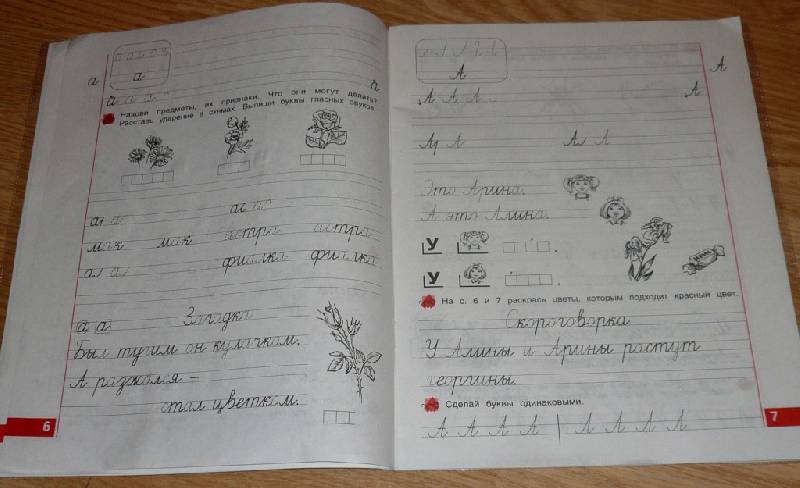 а
а
а
а а а
Назови предметы, их признаки. Что они могут делать?
Расставь ударение в схемах. Выпиши буквы гласных звуков.
ас
мак мак астра астра
фиалка фиалка
а а Загадка
Был тугим он кулачком.
А разжался –
стал цветком.
6
А
А
А А А А
Ар А Ал А
Это Арина.
А это Алина.
У
У
На с. 6 и 7 раскрась цветы, которым подходит красный цвет.
Скороговорка
У Алины и Арины растут
георгины.
Сделай буквы одинаковыми.
А А А А Л Л Л Л
7